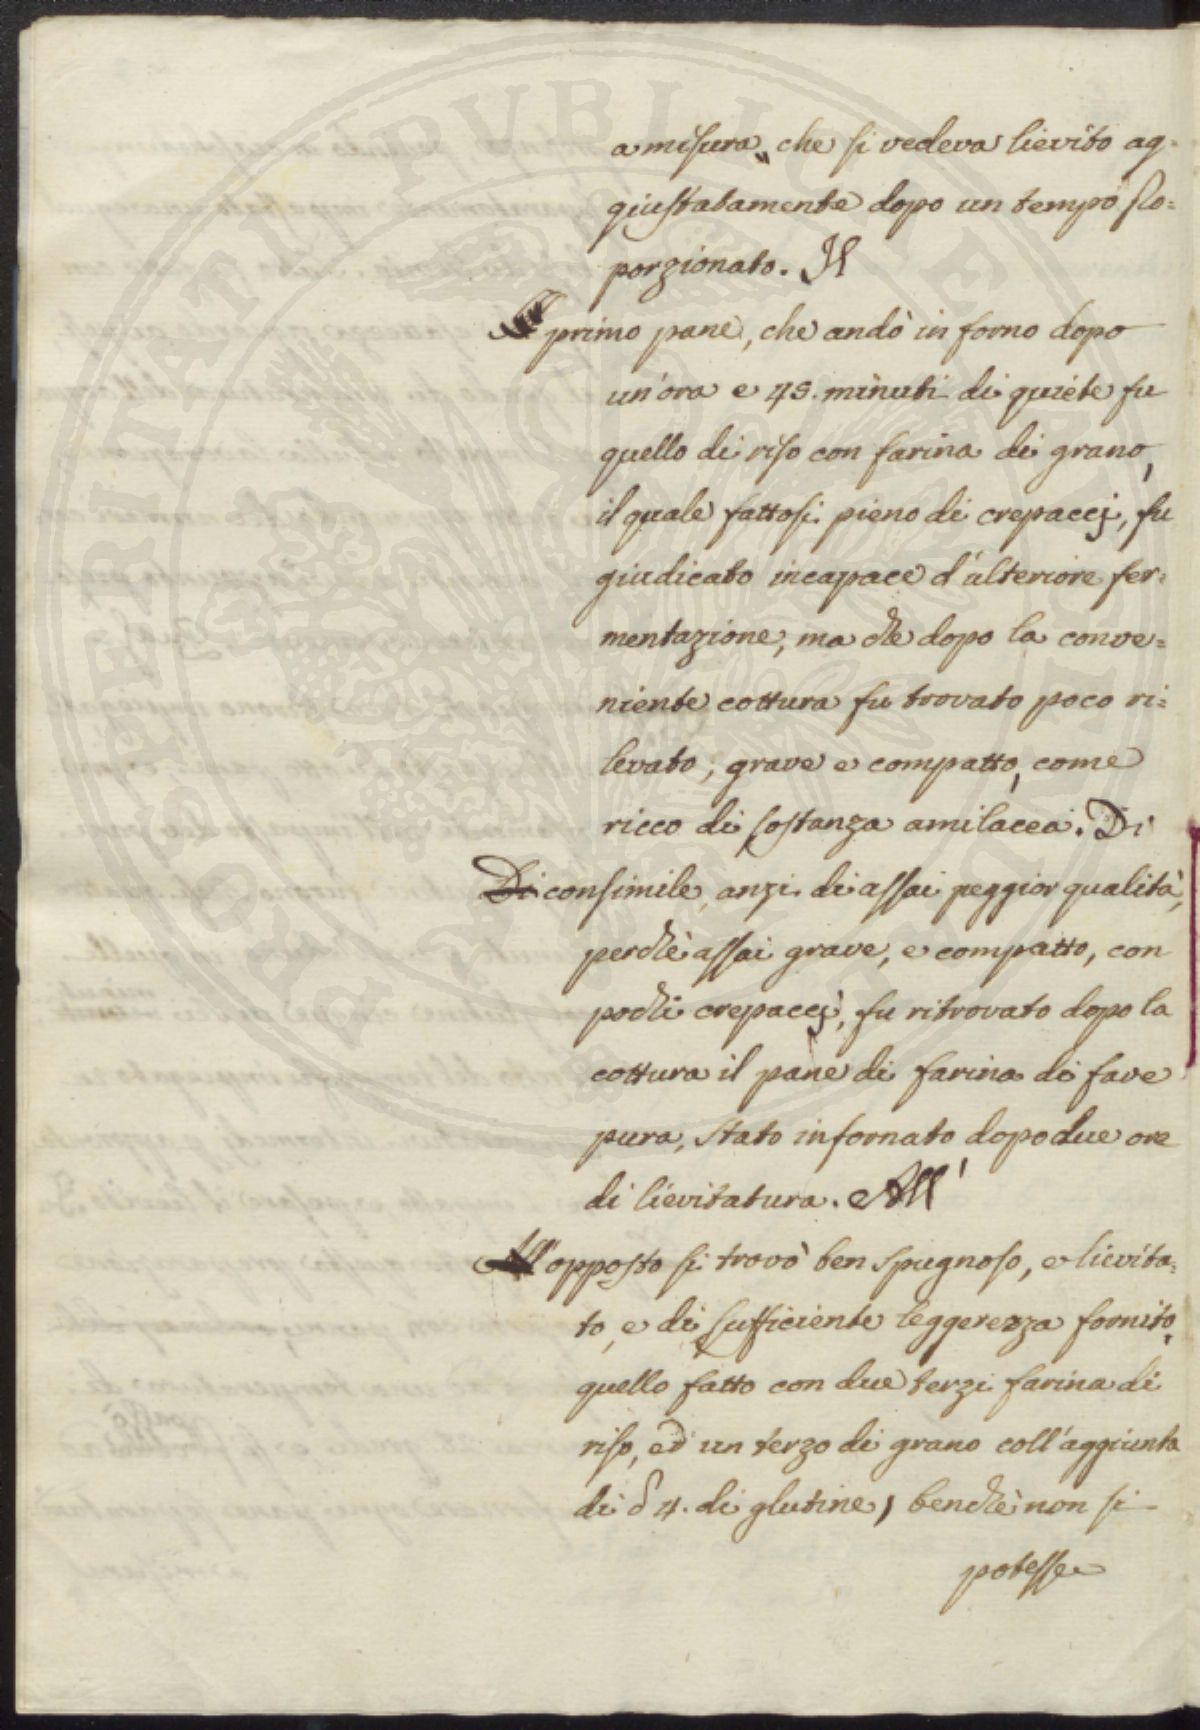 a misura, che si vedeva lievito ag-
giustatamente dopo un tempo pro=
porzionato. Il
primo pane, che andò in forno dopo
un'ora e 45. minuti di quiete fu
quello di riso con farina di grano,
il quale fattosi pieno di crepaccj, fu
giudicato incapace d'ulteriore fer=
mentazione, ma che dopo la conve=
niente cottura fu trovato poco ri=
levato, grave e compatto, come
ricco di sostanza amilacea. Di
Di consimile, anzi di assai peggior qualità,
perchè assai grave, e compatto, con
pochi crepaccj, fu ritrovato dopo la
cottura il pane di farina di fave
pura, stato infornato dopo due ore
di lievitatura. All'
All'opposto si trovò ben spugnoso, e lievita=
to, e di sufficiente leggerezza fornito,
quello fatto con due terzi farina di
riso, ed un terzo di grano coll'aggiunta
di 4. di glutine, benchè non si
potesse